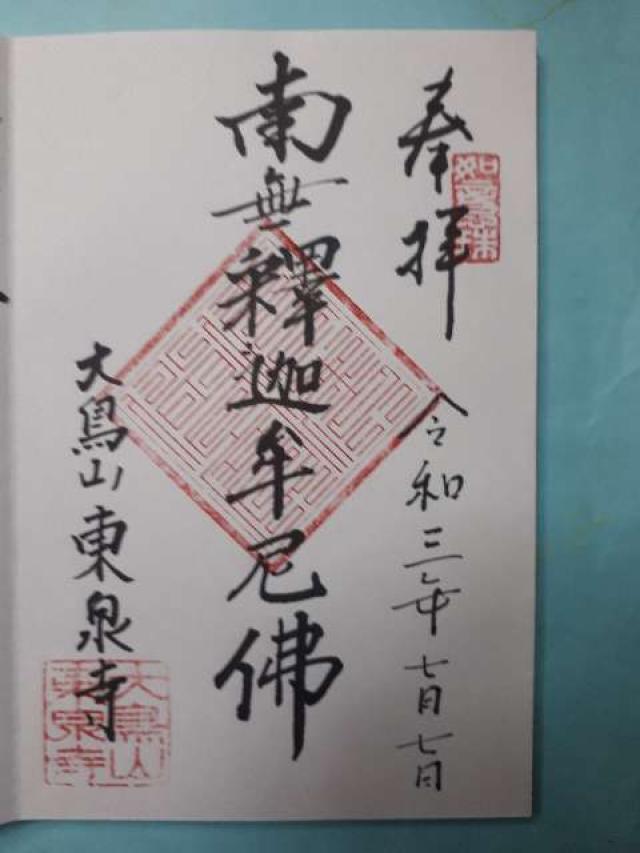 奉拝
令和三年七月七日
南無釋迦牟尼佛
大鳥山東泉寺
大鳥山
東泉寺